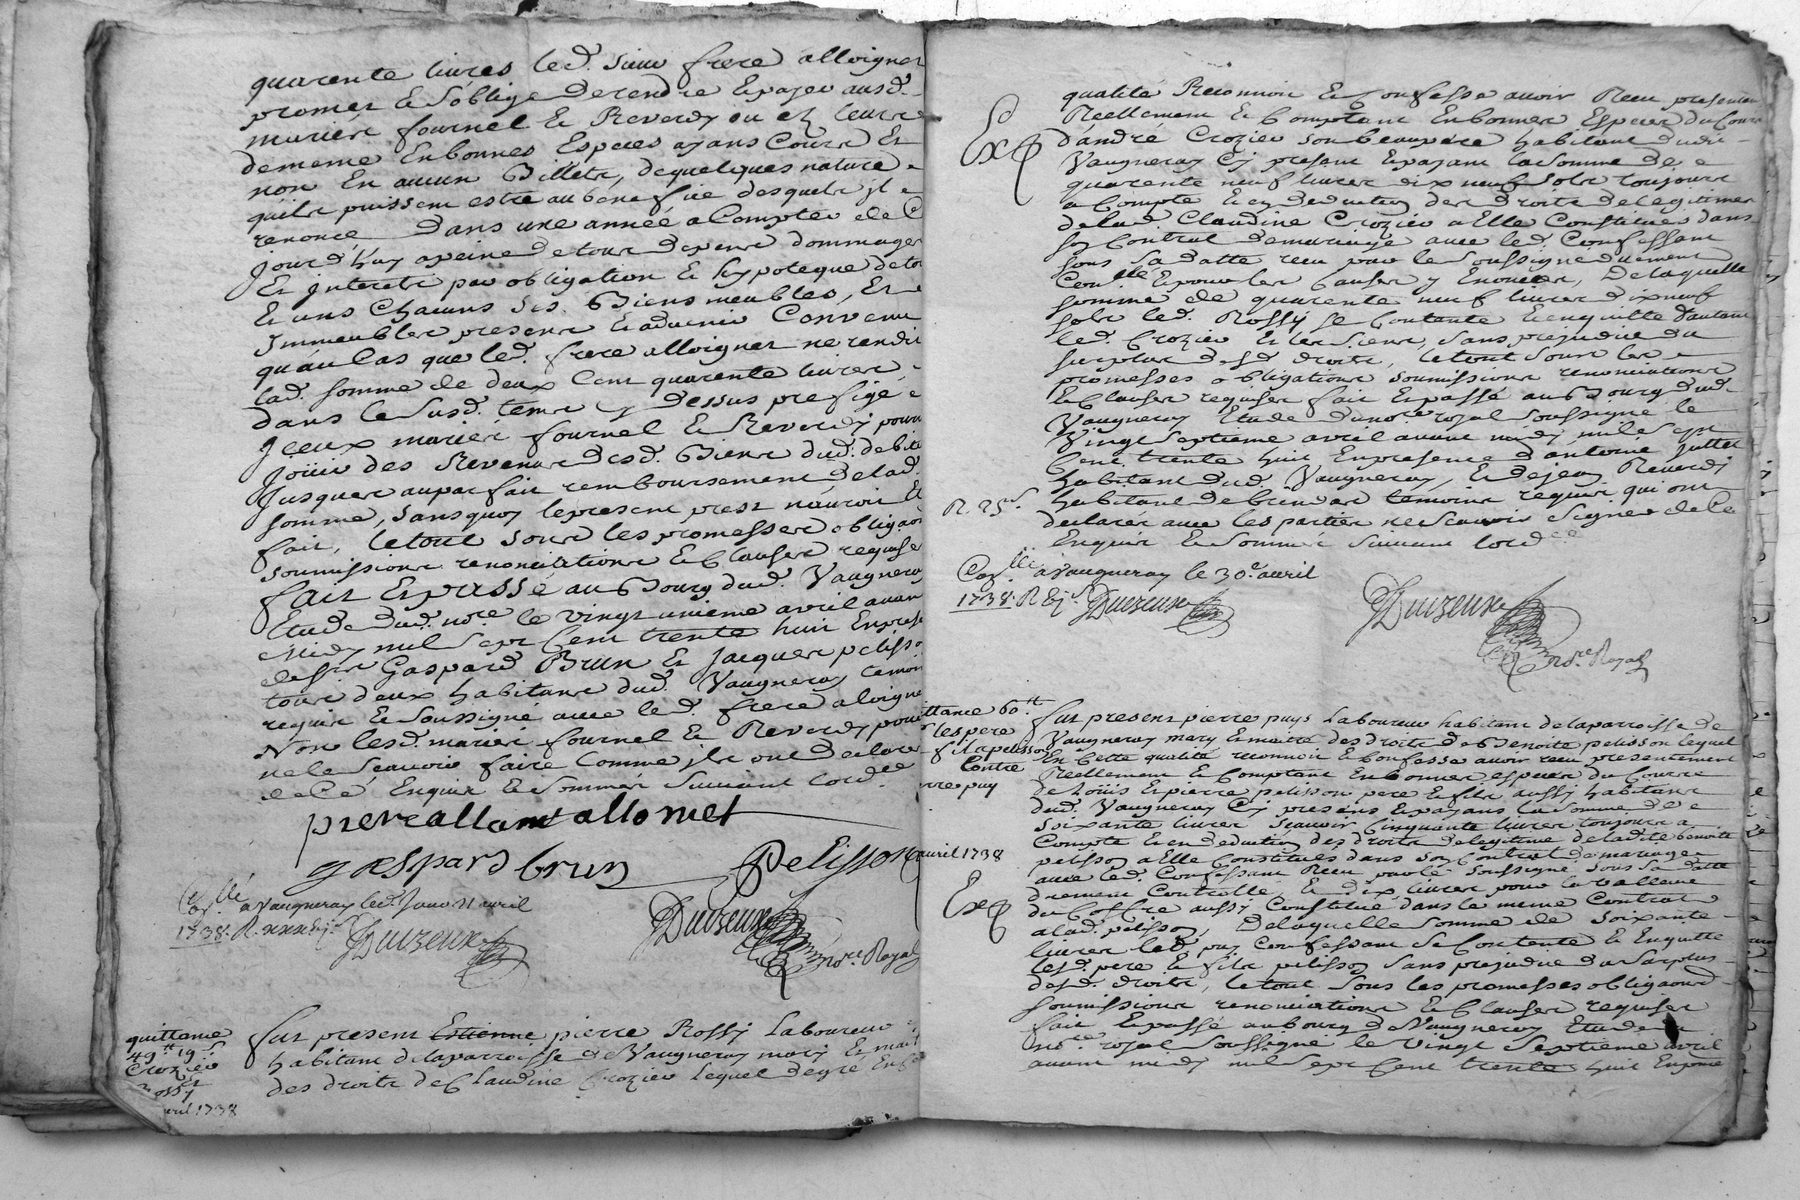 quarente livres led. sieur frere alloignet
promet et s'oblige de rendre et payer ausd.
mariés fournel et Reverdy ou es leurs
de meme en bonnes Especes ayans Cours Et
non En aucun Billets, de quelques nature
quils puissent estre au benefice desquels jl
renonce dans une année a Compter de Ce
jourd'huy a peine de tous depens dommages
Et jnterets par obligation et hypoteque de tous
Et uns chacuns ses Biens meubles, Et
jmmeubles presens et advenir Convenu
qu'au Cas que led. frere alloignet ne rendit
lad. somme de deux Cent quarente livres,
dans le susd. terme cy dessus prefigé
jceux mariés fournel et Reverdy pourront
joüir des Revenus desd. Biens dud. debit
jusques au parfait remboursement de lad.
somme, sans quoy le present prest n'auroit Eté
fait, le tout sous les promesses obligaons
soumissions renonciations et Clauses requises
fait Et passé au Bourg dud. Vaugneray
Etude dud. nore. le vingt unieme avril avant
Midy mil sept Cent trente huit En presence
de sr. Gaspard Brun et jacques pelisson
tous deux habitans dud. Vaugneray temoins
requis et soussigné avec led. frere aloignet
Non lesd. mariés fournel et Reverdy pour
ne le sçavoir faire Comme jls ont declaré
de Ce Enquis et sommés suivant lordce
pierre allomet
gaspard brun
Pelisson
Conllé a Vaugneray led. jour 21 avril
1738. R.
Duizeux
Duizeux
nore. Royal
quittance
49 tt 19 s
Crozier
Rossy
avril 1738
fut present Estienne pierre Rossy Laboureur
habitant de la parroisse de Vaugneray mary Et maitre
des droits de Claudine Crozier lequel de gré En cette
qualité Reconnoit et Confesse avoir Receu presentement
Reellement et Comptant En bonnes Especes du Cours
Exp
d'andré Crozier son beaupere habitant dudit
Vaugneray Cy present Et payant la somme de
quarente neuf livres dix neuf sols toujours
a Compte et en deduction des droits de legitimes
de lad. Claudine Crozier a Elle Constitués dans
son Contrat de mariage avec led. Confessant
sous sa datte receu par le soussigné duement
Conllé Et pour les Causes y Enoncés, De laquelle
somme de quarente neuf livres dix neuf
sols led. Rossy se Contente et en quitte d'autant
led. Crozier et les siens, sans prejudice du
surplus desd. droits, le tout sous les
promesses obligations soumissions renonciations
Et Clauses requises fait Et passé au Bourg dud.
Vaugneray Etude du nore. royal soussigné le
Vingt septieme avril avant midy mil sept
Cent trente huit En presence d'antoine juttet
habitant dud. Vaugneray, Et de jean Reverdy
R. 25 s.
habitant de brindas temoins requis qui ont
declarés avec les parties ne sçavoir signer de Ce
Enquis et sommés suivant lordce
Conllé a Vaugneray le 30e. avril
1738. R.
Duizeux
Duizeux
nore. Royal
quittance 60 tt
les pere
fils pelisson
Contre
pierre puy
avril 1738
Exp
fut present pierre puys Laboureur habitant de la parroisse de
Vaugneray mary Et maitre des droits de Benoite pelisson lequel
En Cette qualité reconnoit et Confesse avoir receu presentement
Reellement et Comptant En bonnes especes du Cours
de Loüis Et pierre pelisson pere et fils aussy habitans
dud. Vaugneray Cy presens Et payans La somme de
soixante livres sçavoir Cinquante livres toujours a
Compte Et en deduction des droits de legitime de ladite benoite
pelisson a Elle Constitués dans son Contrat de mariage
avec led. Confessant Receu par le soussigné sous sa datte
duement Controllé, Et dix livres pour la valleur
du Coffre aussy Constitué dans le meme Contrat
a lad. pelisson, De laquelle somme de soixante
livres led. puy Confessant se Contente et En quitte
lesd. pere et fils pelisson sans prejudice du surplus
desd. droits, le tout sous les promesses obligaons
soumissions renonciations et Clauses requises
fait Et passé au bourg de Vaugneray Etude du
nore. royal soussigné le Vingt septieme avril
avant midy mil sept Cent trente huit En presence